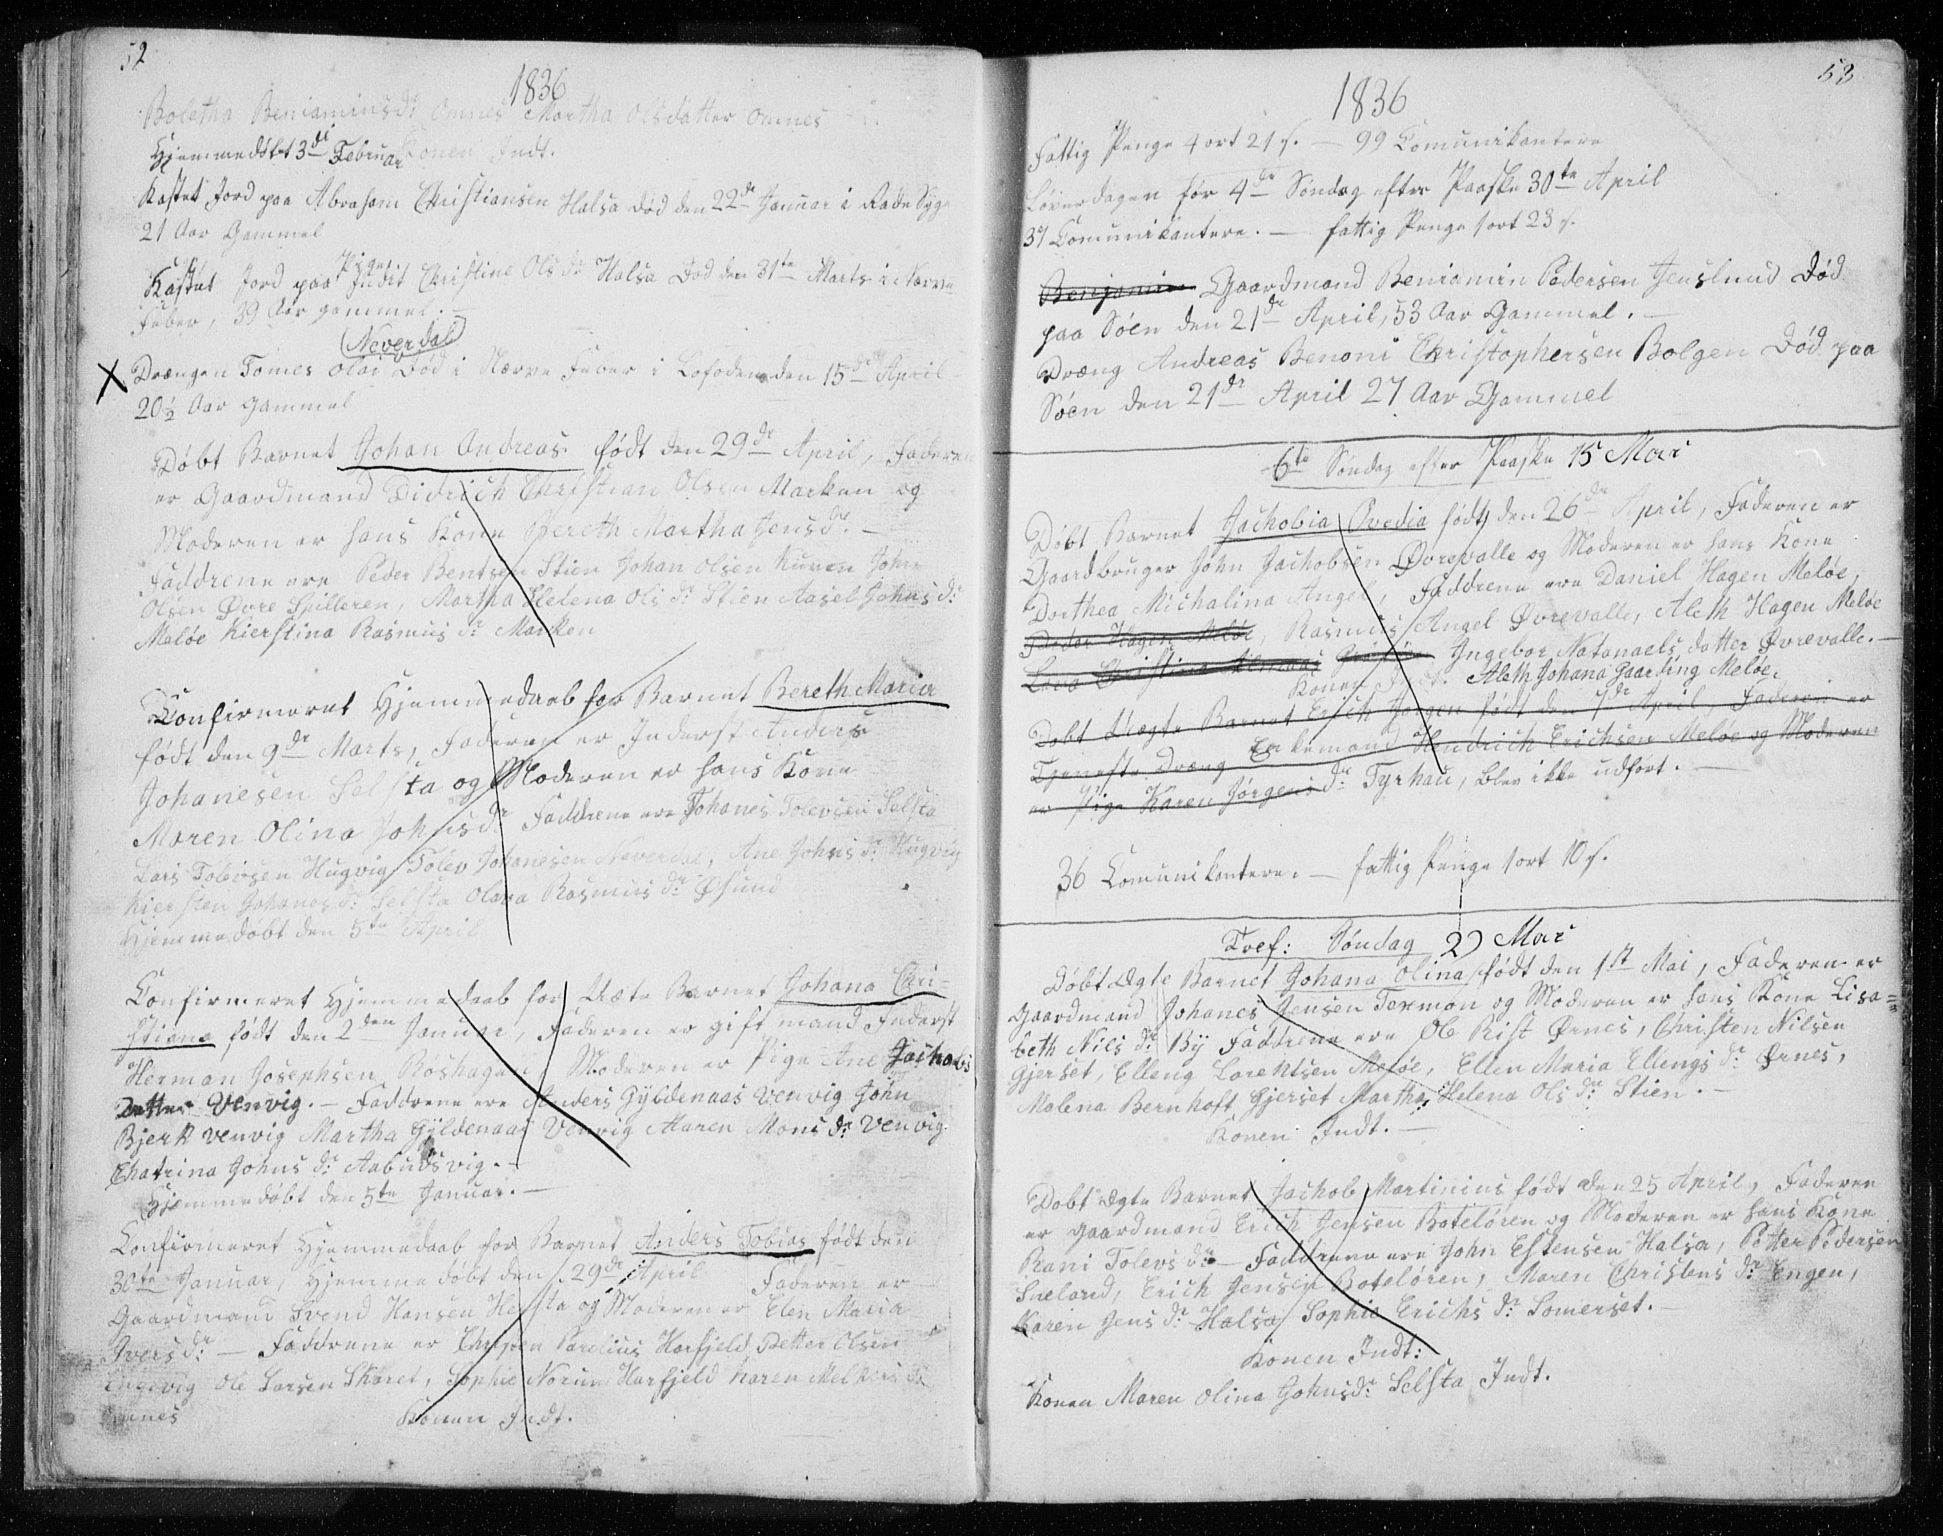 52
1836
Boletha Beniamins dr Omnes Martha Olsdatter Omnes
Hjemmedøbt 3de Februar Konen Indt.
Kastet Jord paa Abraham Christiansen Halsa død den 22de Januar i Rade Syge
21 Aar Gammel
Pige
Kastet Jord paa Judit Christine Ols dr Halsa Død den 31te Marts i Nerve
Feber, 39 Aar gammel. —
Neverdal
X Drængen Tomes Olai Død i Nerve Feber i Lofoden den 15de April
20½ Aar gammel
Døbt Barnet Johan Andreas født den 29de April, Faderen
er Gaardmand Didrich Christian Olsen Marken og
Moderen er hans Kone Bereth Martha Jensdr. —
Faddrene ere Peder Bentsen Stien Johan Olsen Kunen John
Olsen Øvre Spilleren, Martha Helena Ols dr Stien Aasel Johns dr
Meløe Kierstina Rasmus dr Marken
Confirmeret Hjemmedaab for Barnet Bereth Maria
født den 9de Marts, Faderen er Inderst Anders
Johanesen Selsta og Moderen er hans Kone
Maren Olina Johnsdr Faddrene ere Johanes Tolevsen Selsta
Lars Tolevsen Hugvig Tolev Johanesen Neverdal, Ane Johns dr Hugvig
Kiersten Johanes dr Selsta Olava Rasmus dr Øsund
Hjemmedøbt den 5te April
Confirmeret Hjemmedaab for Uæte Barnet Johana Chri-
stiana født den 2den Januar, Faderen er gift mand Inderst
Herman Josephsen Røshagen, Moderen er Pige Ane Jachobs
Datter Venvig. — Faddrene ere Anders Gyldenaas Venvig John
Bjerk Venvig Martha Gyldenaas Venvig Maren Mons dr Venvig
Chatrina Johns dr Aabudsvig. —
Hjemmedøbt den 5te Januar. —
Confirmeret Hjemmedaab for Barnet Anders Tobias født den
30te Januar, Hjemmedøbt den 29de April Faderen er
Gaardmand Svend Hansen Helsta og Moderen er Elen Maria
Ivers dr — Faddrene er Christen Parelius Harfjeld Petter Olsen
Engevig Ole Larsen Skaret, Sophie Norum Harfjeld Karen Melkiers dr
Omnes Konen Indt.
53
1836
Fattig Penge 4 ort 21 s. — 99 Comunikantere
Løverdagen før 4de Søndag efter Paaske 30te April
37 Comunikantere. — fattig Penge 1 ort 23 s.
Benjamin Gaardmand Beniamin Pedersen Jenslund Død
paa Søen den 21de April, 53 Aar Gammel. —
Dræng Andreas Benoni Christophersen Bolgen Død paa
Søen den 21de April 27 Aar Gammel
6te Søndag efter Paaske 15 Mai
Døbt Barnet Jachobia Ovedia født den 26de April, Faderen er
Gaardbruger John Jachobsen Øvrevalle og Moderen er hans Kone
Dorthea Michalina Angel, Faddrene ere Daniel Hagen Meløe,
Peder Hagen Meløe, Rasmus Angel Øvrevalle, Aleth Hagen Meløe
Lava Christina Ingebor Natanaels datter Øvrevalle. —
Konen Indt. Aleth Johana Gaarding Meløe.
Døbt Uægte Barnet Erich Jørgen født den 1de April, Faderen er
Tjeneste Dræng Enkemand Hendrich Erichsen Meløe og Moderen
er Pige Karen Jørgens dr Tyrhau, blev ikke udført. —
36 Comunikantere. — fattig Penge 1 ort 10 s.
Tref: Søndag 29 Mai
Døbt Ægte Barnet Johana Olina født den 1st Mai, Faderen er
Gaardmand Johanes Jensen Texmon og Moderen er hans Kone Lisa=
beth Nils dr By Faddrene ere Ole Rist Ørnes, Christen Nilsen
Gjerset, Elleng Lorentsen Meløe, Ellen Maria Ellengs dr Ørnes,
Malena Bernhoft Gjerset Martha Helena Ols dr Stien. —
Konen Indt. —
Døbt Ægte Barnet Jachob Martinius født den 25 April, Faderen
er gaardmand Erich Jensen Boteløren og Moderen er hans Kone
Rani Tolevs dr — Faddrene ere John Estensen Halsa, Petter Pedersen
Sneland, Erich Jensen Boteløren, Maren Christens dr Engen,
Karen Jens dr Halsa Sophie Erichs dr Somerset. —
Konen Indt:
Konen Maren Olina Johnsdr Selsta Indt.